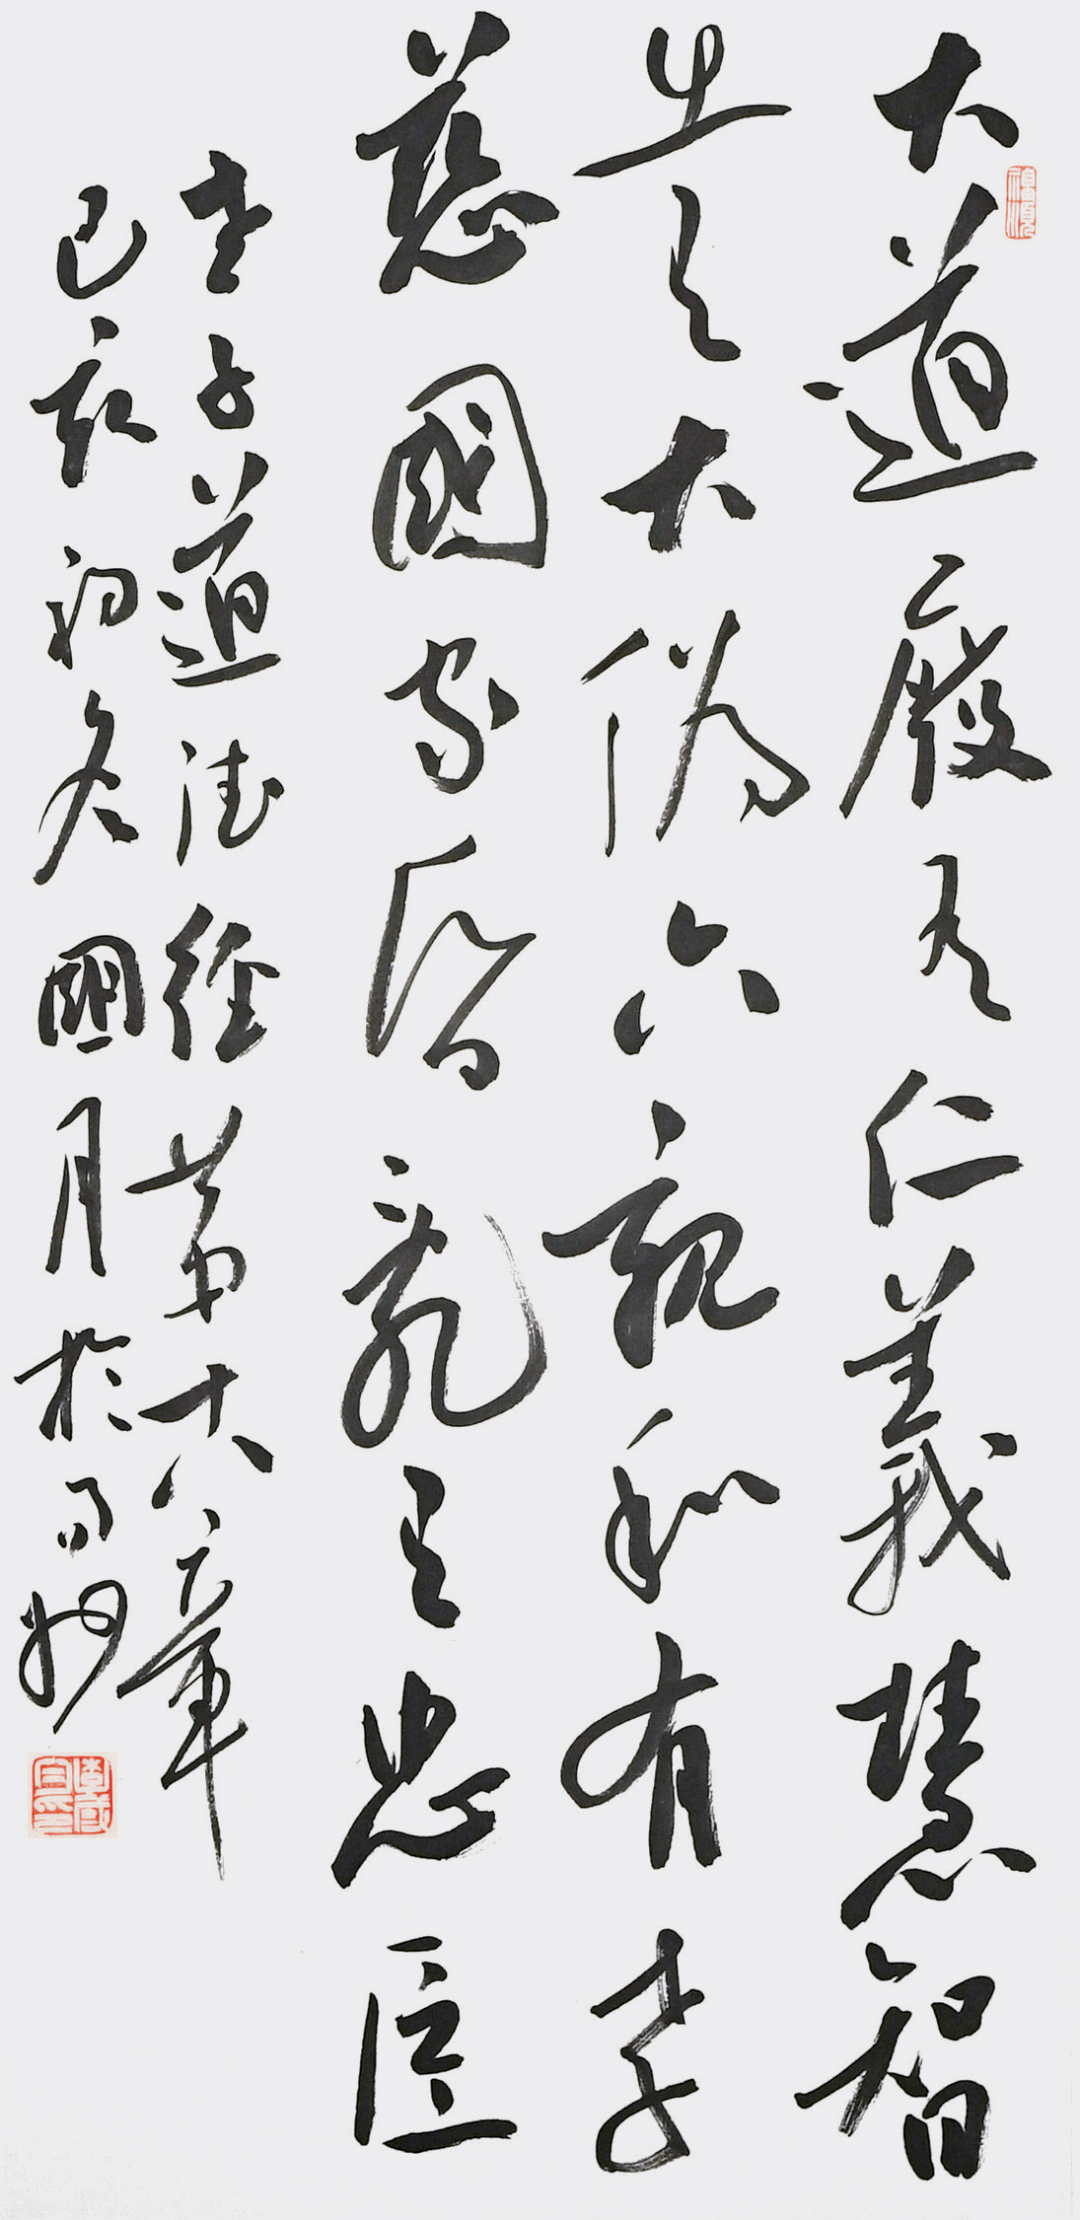 大道廢有仁義慧智
出有大偽六親和有孝
慈國家昏亂有忠臣
老子道德經第十八章
己亥初冬國月於